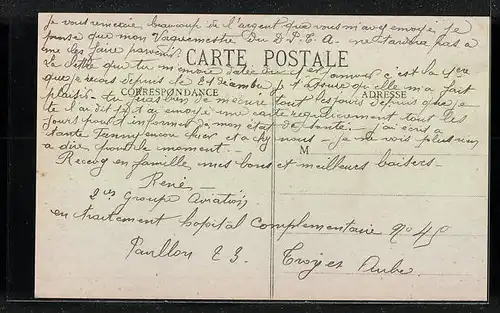 je vous remercie beaucoup de l'argent que vous m'avez envoyé je
pense que mon Vaguemestre du D.P.E.A. ne tardera pas a
me les faire parvenir.
CARTE POSTALE
La lettre que tu m'envoie datée du 1er Janvier c'est la 1ere
que je recois depuis le 24 décembre je t'assure qu'elle m'a fait
CORRESPONDANCE
ADRESSE
plaisir. tous les jours depuis que je
te l'ai dit je t'ai envoyé une carte regulièrement tout les
jours pour t'informer de mon état de santé. J'ai écris a
tante Fanny encore hier et a chez nous - je ne vois plus rien
a dire pour le moment. -
M
Recevez en famille mes bons et meilleurs baisers -
René -
2em Groupe Aviation
en traitement hopital Complementaire No 45
Pavillon E 3.
Troyes Aube